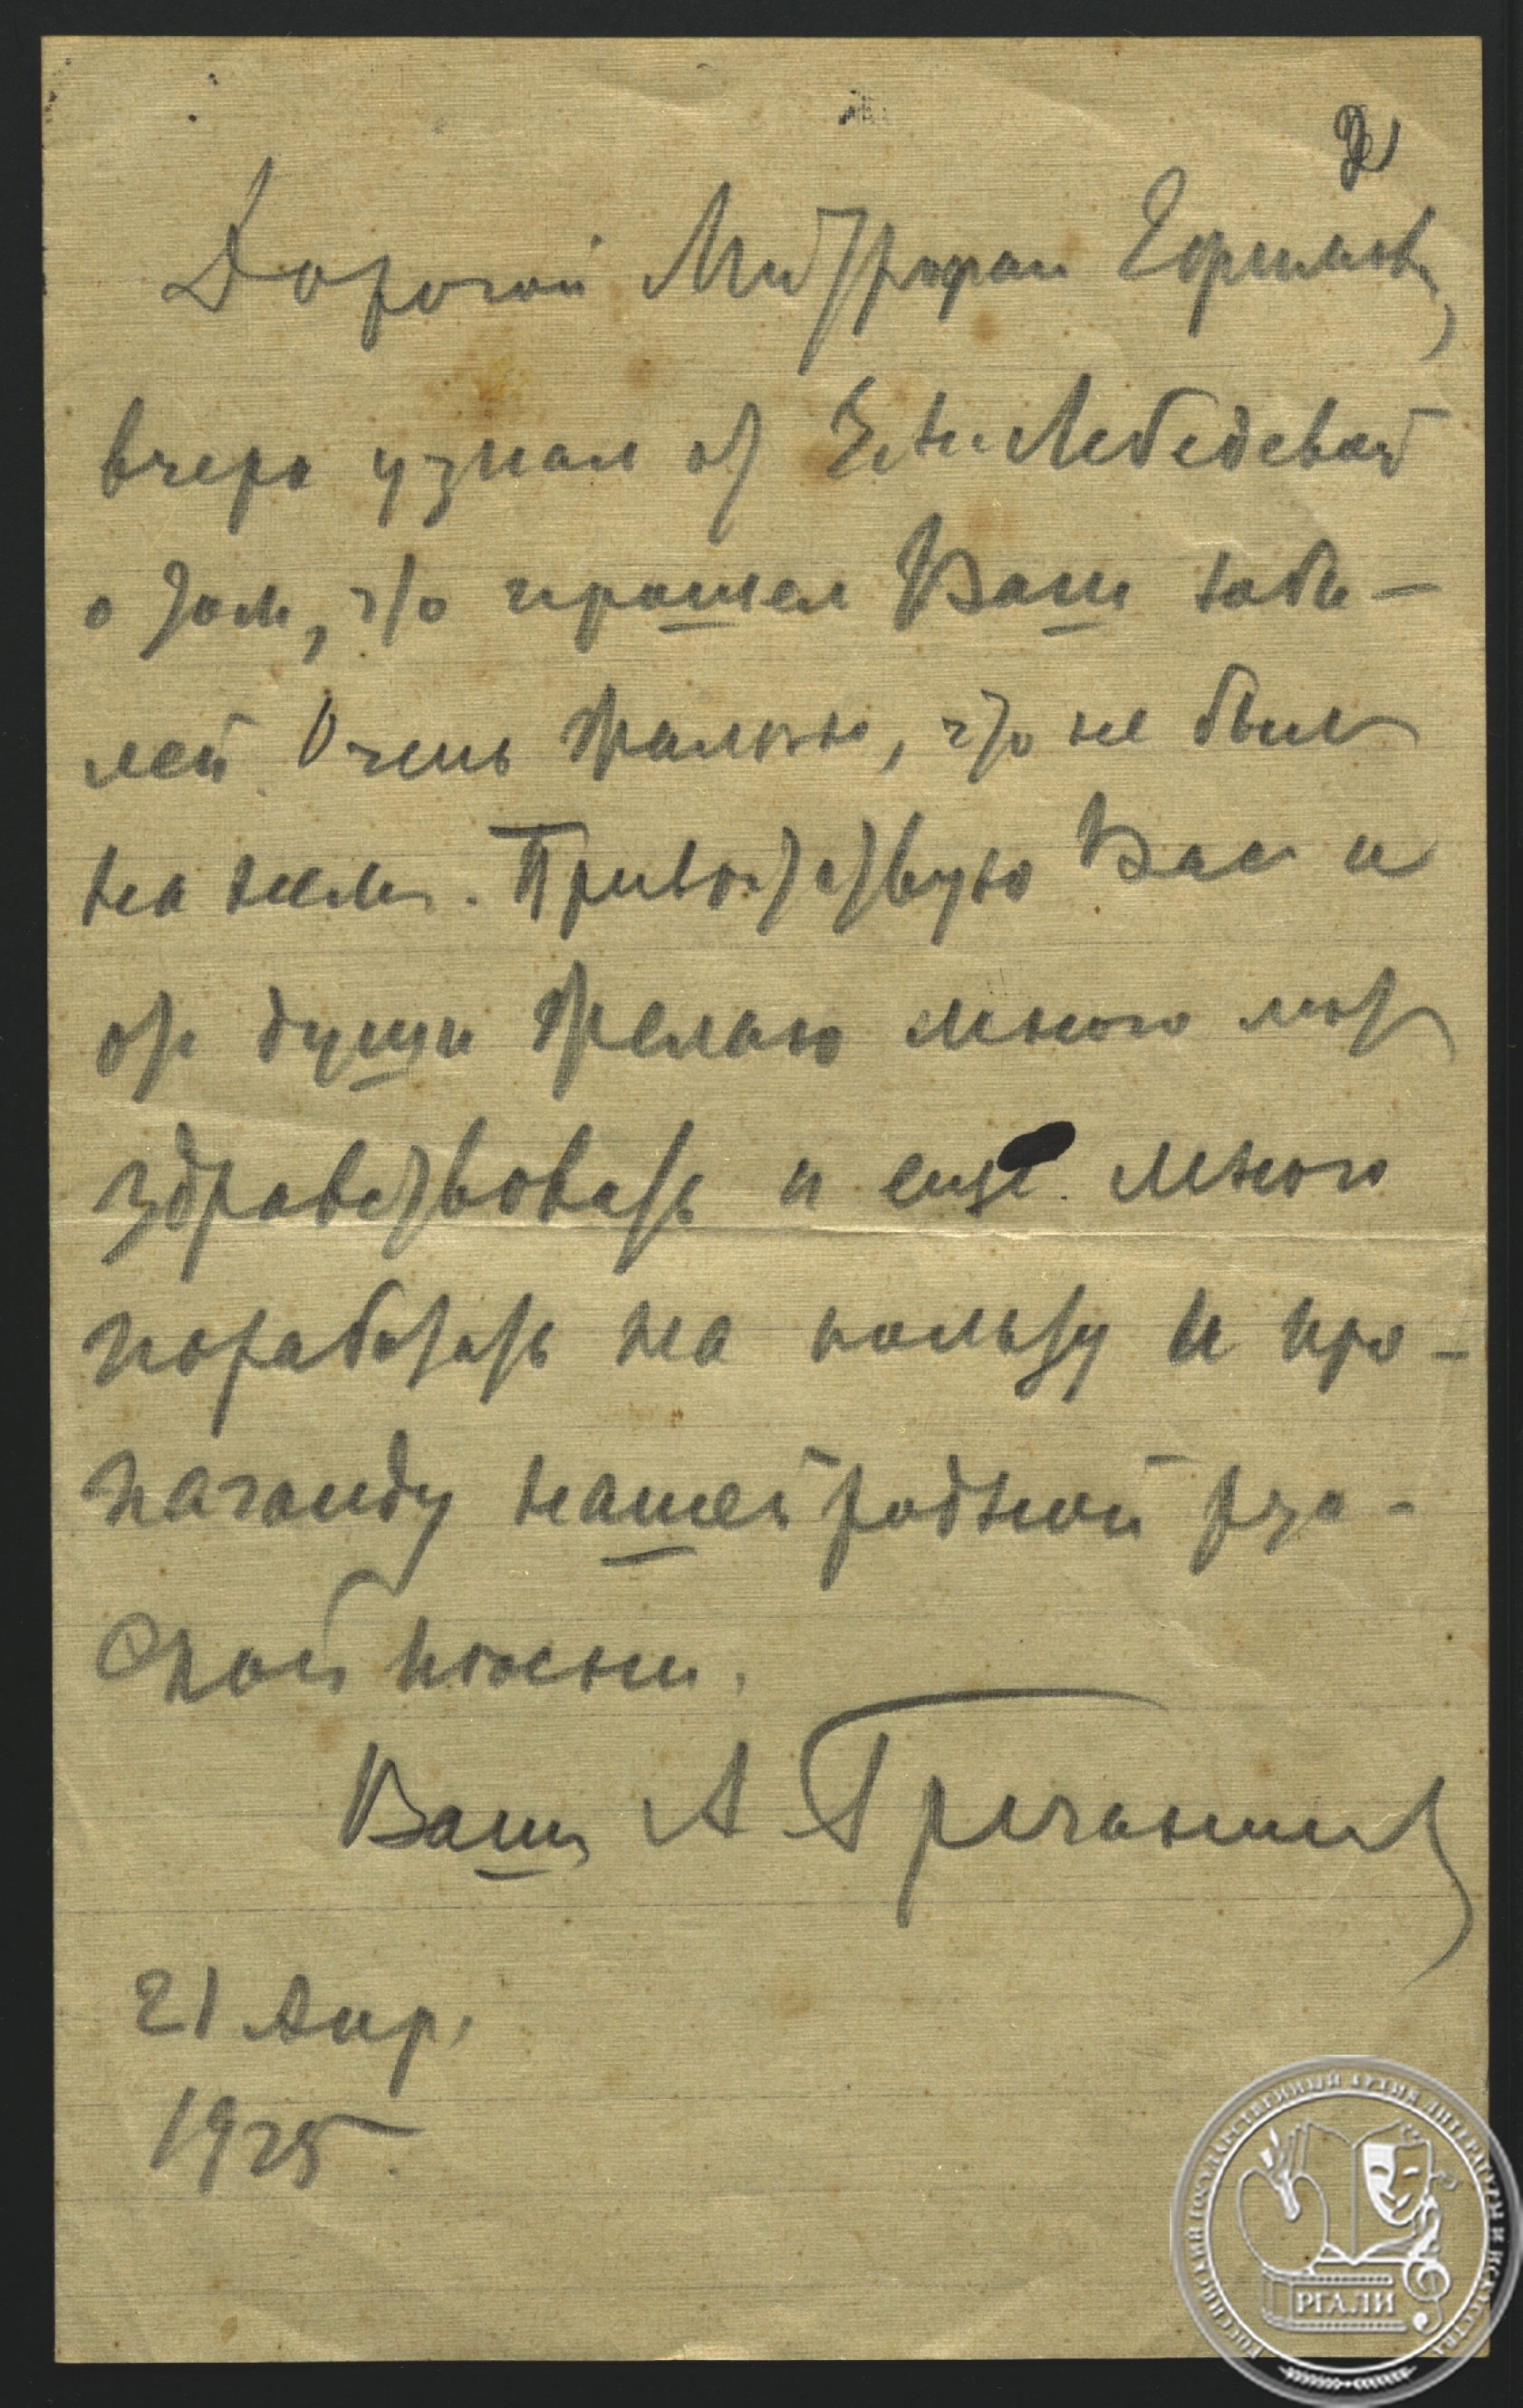 2
Дорогой Митрофан Ефимов,
вчера узнал от Ек. Н. Лебедевой
о том, что прошел Ваш юби-
лей. Очень жалею, что не был
на нем. Приветствую Вас и
от души желаю много лет
здравствовать и еще много
поработать на пользу и про-
паганду нашей родной рус-
ской песни.
Ваш А Гречанинов
21 Апр.
1925.
РОССИЙСКИЙ ГОСУДАРСТВЕННЫЙ АРХИВ ЛИТЕРАТУРЫ И ИСКУССТВА
РГАЛИ